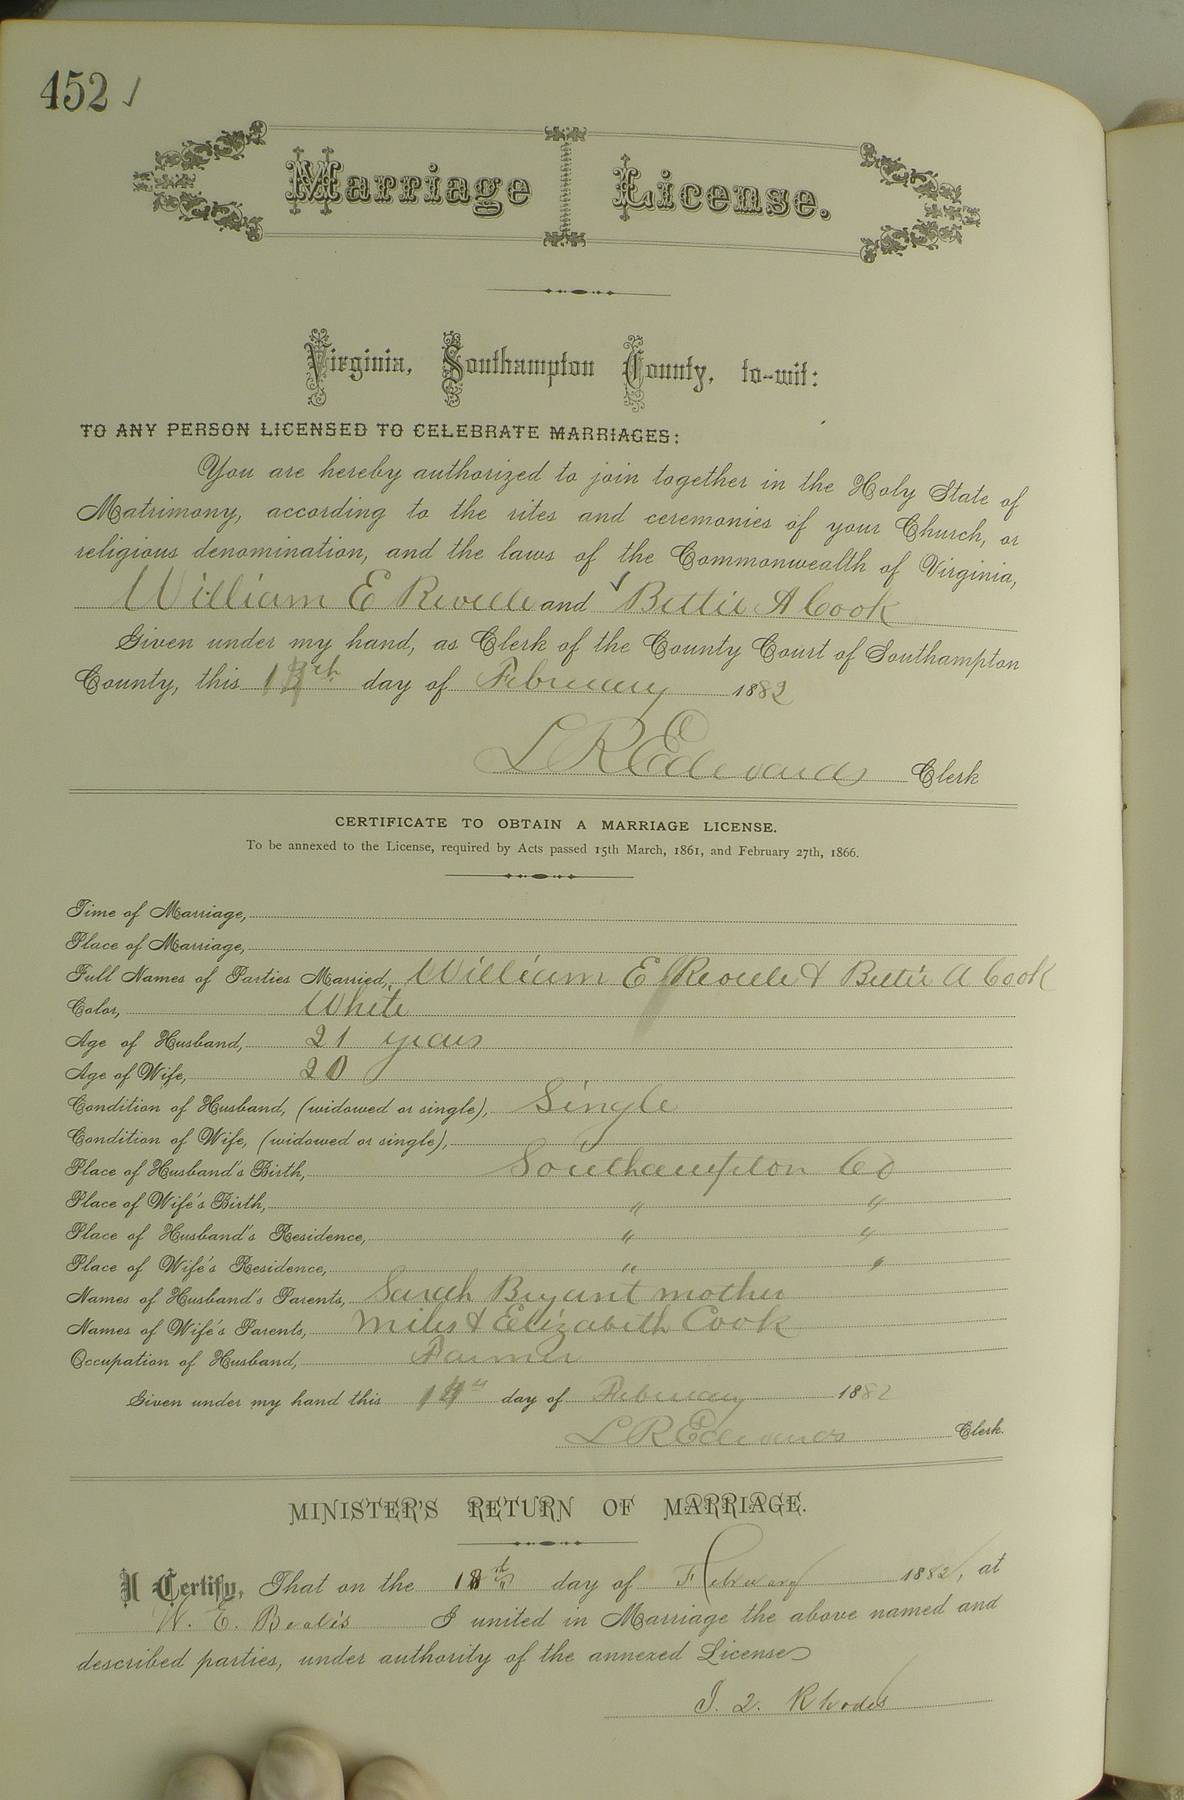 452 ✓
Marriage License.
Virginia, Southampton County, to-wit:
TO ANY PERSON LICENSED TO CELEBRATE MARRIAGES:
You are hereby authorized to join together in the Holy State of
Matrimony, according to the rites and ceremonies of your Church, or
religious denomination, and the laws of the Commonwealth of Virginia,
William E Revelle and Bettie A Cook
Given under my hand, as Clerk of the County Court of Southampton
County, this day of February 1882
L R Edwards Clerk
CERTIFICATE TO OBTAIN A MARRIAGE LICENSE.
To be annexed to the License, required by Acts passed 15th March, 1861, and February 27th, 1866.
Time of Marriage,
Place of Marriage,
Full Names of Parties Married, William E Revelle & Bettie A Cook
Color, White
Age of Husband, 21 years
Age of Wife, 20
Condition of Husband, (widowed or single), Single
Condition of Wife, (widowed or single),
Place of Husband's Birth, Southampton Co
Place of Wife's Birth, " "
Place of Husband's Residence, " "
Place of Wife's Residence, " "
Names of Husband's Parents, Sarah Bryant mother
Names of Wife's Parents, Miles & Elizabeth Cook
Occupation of Husband, Farmer
Given under my hand this day of February 1882
L R Edwards Clerk.
MINISTER'S RETURN OF MARRIAGE.
I Certify, That on the day of February 1882, at
W. E. Beale's I united in Marriage the above named and
described parties, under authority of the annexed License
J. 2. Rhodes